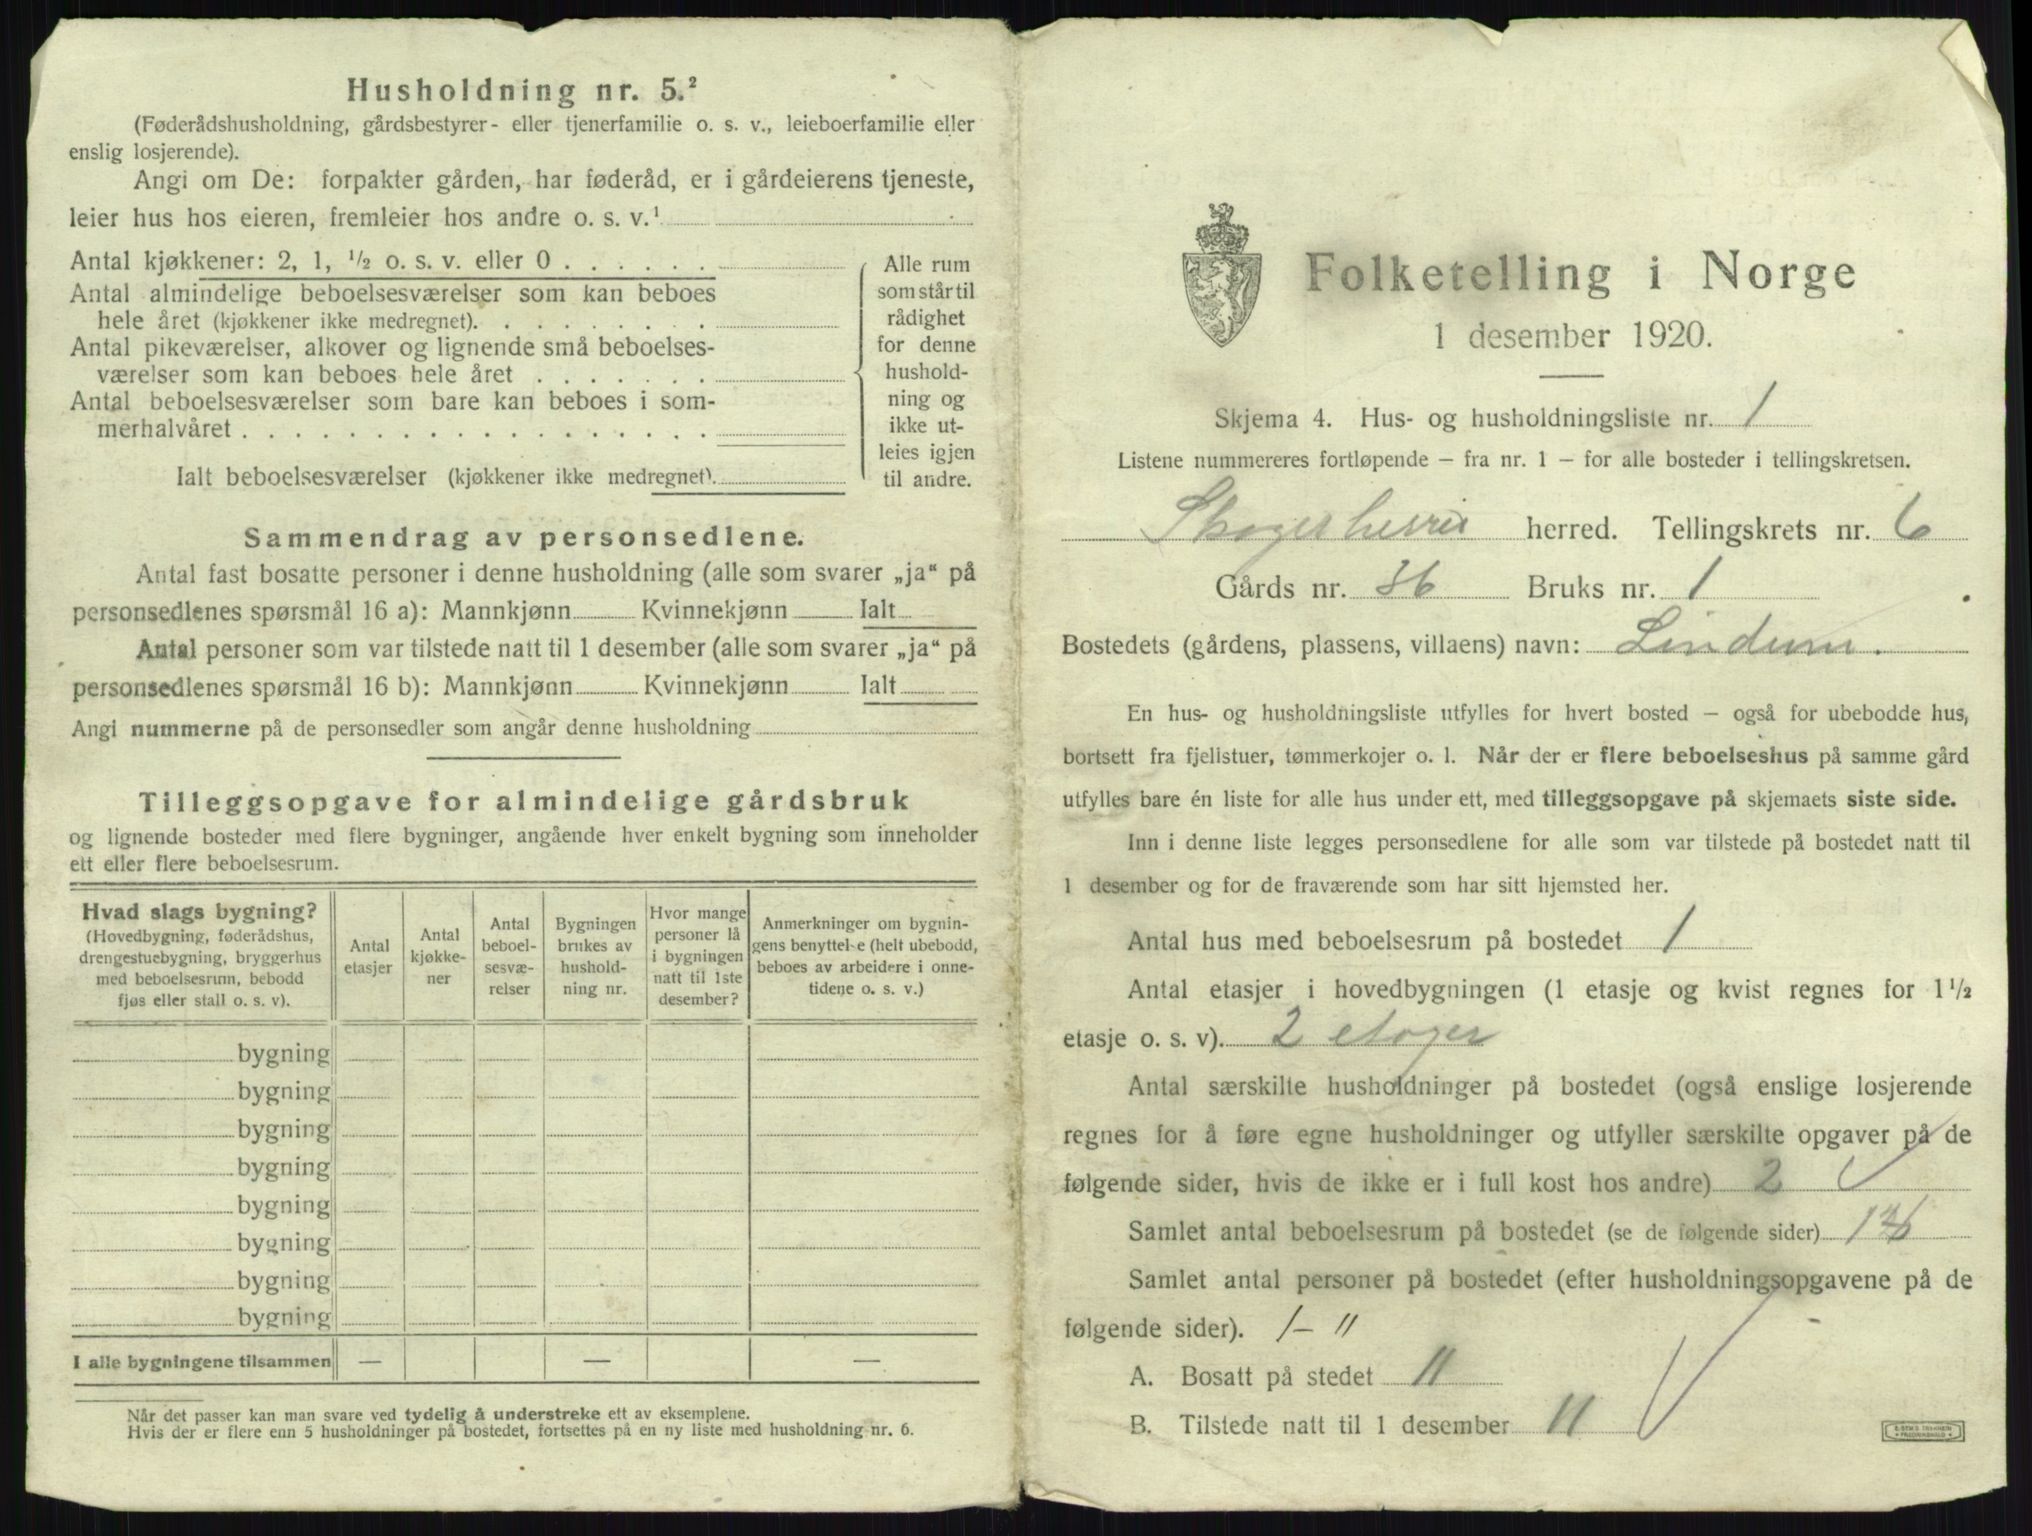 Husholdning nr. 5.²
(Føderådshusholdning, gårdsbestyrer- eller tjenerfamilie o. s. v., leieboerfamilie eller
enslig losjerende).
Angi om De: forpakter gården, har føderåd, er i gårdeierens tjeneste,
leier hus hos eieren, fremleier hos andre o. s. v.¹
Antal kjøkkener: 2, 1, ¹/₂ o. s. v. eller 0 . . . . . .
Antal almindelige beboelsesværelser som kan beboes
hele året (kjøkkener ikke medregnet). . . . . . . . .
Antal pikeværelser, alkover og lignende små beboelses-
værelser som kan beboes hele året . . . . . . .
Antal beboelsesværelser som bare kan beboes i som-
merhalvåret . . . . . . . . . . . . . . . . . .
Ialt beboelsesværelser (kjøkkener ikke medregnet).
Alle rum
som står til
rådighet
for denne
hushold-
ning og
ikke ut-
leies igjen
til andre.
Sammendrag av personsedlene.
Antal fast bosatte personer i denne husholdning (alle som svarer „ja“ på
personsedlenes spørsmål 16 a): Mannkjønn Kvinnekjønn Ialt
Antal personer som var tilstede natt til 1 desember (alle som svarer „ja“ på
personsedlenes spørsmål 16 b): Mannkjønn Kvinnekjønn Ialt
Angi nummerne på de personsedler som angår denne husholdning
Tilleggsopgave for almindelige gårdsbruk
og lignende bosteder med flere bygninger, angående hver enkelt bygning som inneholder
ett eller flere beboelsesrum.
Hvad slags bygning?
(Hovedbygning, føderådshus,
drengestuebygning, bryggerhus
med beboelsesrum, bebodd
fjøs eller stall o. s. v).
Antal
etasjer
Antal
kjøkke-
ner
Antal
beboel-
sesvæ-
relser
Bygningen
brukes av
hushold-
ning nr.
Hvor mange
personer lå
i bygningen
natt til 1ste
desember?
Anmerkninger om bygnin-
gens benyttelse (helt ubebodd,
beboes av arbeidere i onne-
tidene o. s. v.)
bygning
bygning
bygning
bygning
bygning
bygning
bygning
bygning
I alle bygningene tilsammen — — —
Når det passer kan man svare ved tydelig å understreke ett av eksemplene.
Hvis der er flere enn 5 husholdninger på bostedet, fortsettes på en ny liste med husholdning nr. 6.
Folketelling i Norge
1 desember 1920.
Skjema 4. Hus- og husholdningsliste nr. 1
Listene nummereres fortløpende — fra nr. 1 — for alle bosteder i tellingskretsen.
herred. Tellingskrets nr. 6
Gårds nr. 36 Bruks nr. 1
Bostedets (gårdens, plassens, villaens) navn: Lindum.
En hus- og husholdningsliste utfylles for hvert bosted — også for ubebodde hus,
bortsett fra fjellstuer, tømmerkojer o. l. Når der er flere beboelseshus på samme gård
utfylles bare én liste for alle hus under ett, med tilleggsopgave på skjemaets siste side.
Inn i denne liste legges personsedlene for alle som var tilstede på bostedet natt til
1 desember og for de fraværende som har sitt hjemsted her.
Antal hus med beboelsesrum på bostedet 1
Antal etasjer i hovedbygningen (1 etasje og kvist regnes for 1¹/₂
etasje o. s. v). 2 etager
Antal særskilte husholdninger på bostedet (også enslige losjerende
regnes for å føre egne husholdninger og utfyller særskilte opgaver på de
følgende sider, hvis de ikke er i full kost hos andre) 2
Samlet antal beboelsesrum på bostedet (se de følgende sider)
Samlet antal personer på bostedet (efter husholdningsopgavene på de
følgende sider). 1 — 11
A. Bosatt på stedet 11
B. Tilstede natt til 1 desember 11